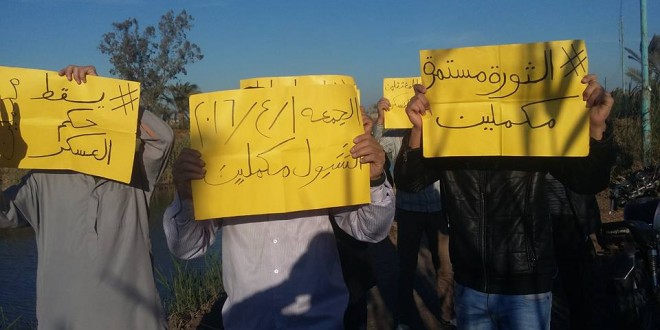 #الثورة مستمرة
مكملين
الجمعه ١/٤/٢٠١٦
مكملين
#يسقط
حكم
العسكر